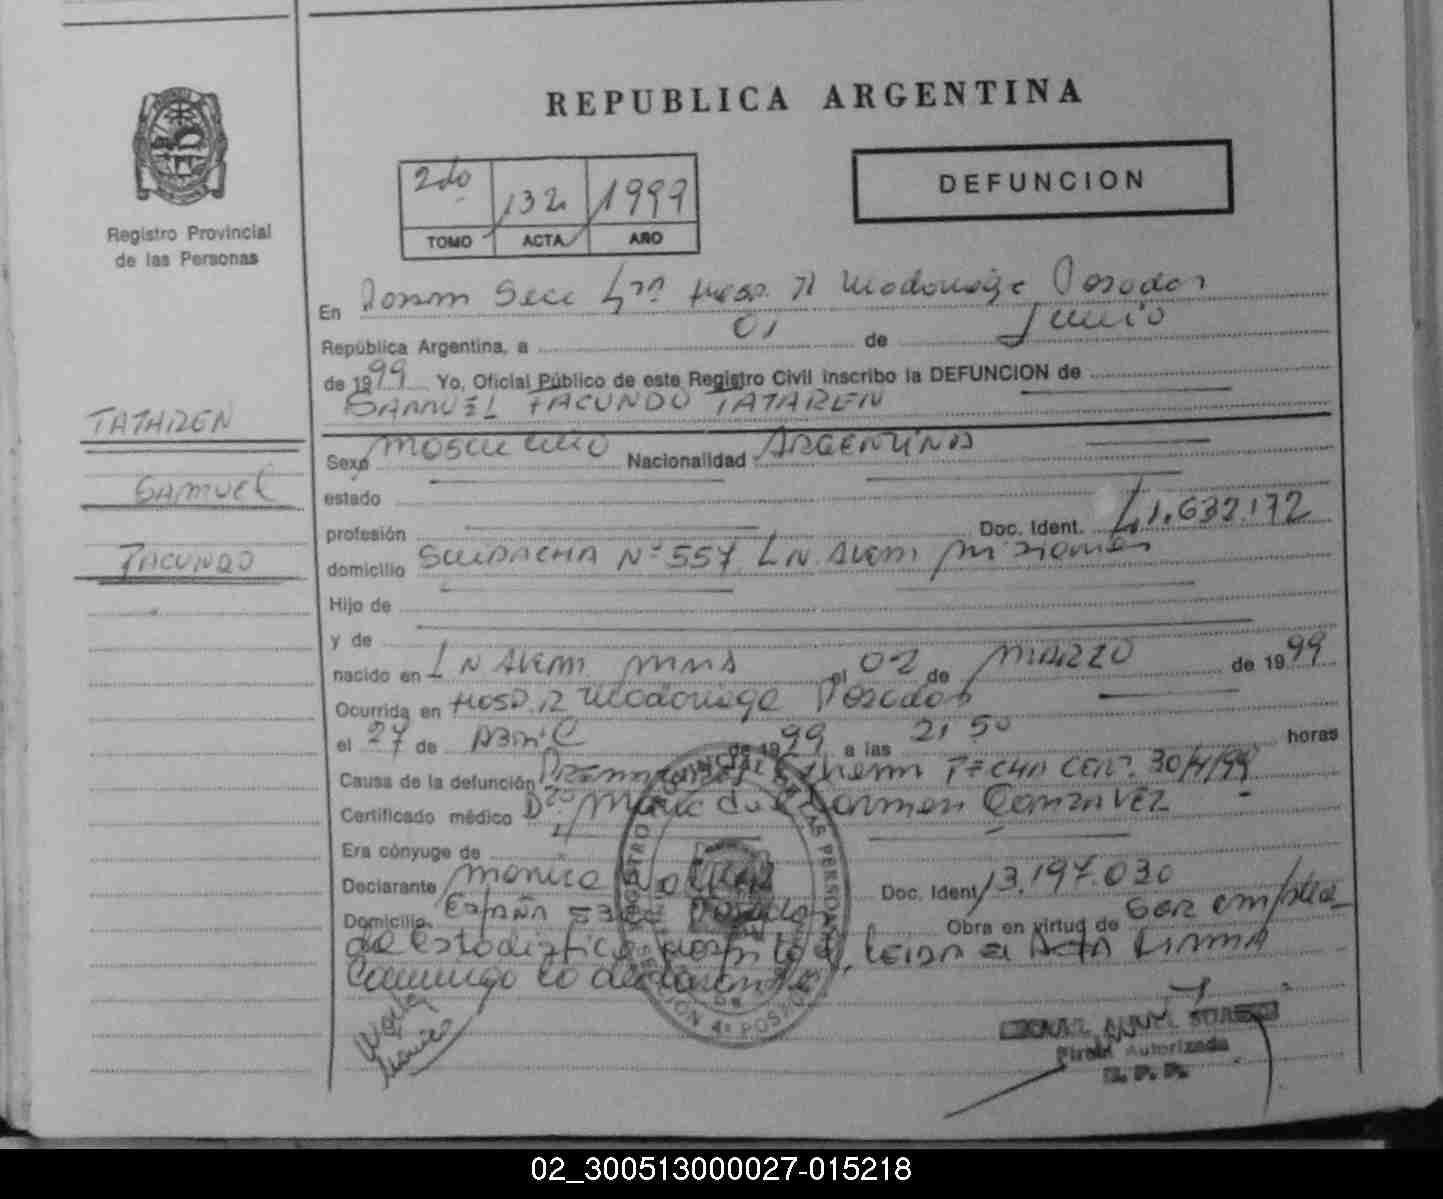 REPUBLICA ARGENTINA
2do 132 1999
TOMO ACTA AÑO
DEFUNCION
Registro Provincial
de las Personas
En Posadas Secc 4ta Hosp. R Madariaga Posadas
República Argentina, a 01 de Junio
de 1999 Yo, Oficial Público de este Registro Civil inscribo la DEFUNCION de
SAMUEL FACUNDO TATAREN
TATAREN
SAMUEL
FACUNDO
Sexo masculino Nacionalidad ARGENTINA
estado
profesión Doc. Ident. 41.632.172
domicilio SUIPACHA Nº 557 L N. ALEM misiones
Hijo de
y de
nacido en L N ALEM. MNES el 02 de MARZO de 1999
Ocurrida en HOSP. R Madariaga Posadas
el 27 de ABRIL de 1999 a las 21 50 horas
Causa de la defunción FECHA CERT. 30/4/99
Certificado médico Dra María del Carmen GONZALVEZ
Era cónyuge de
Declarante Monica Doc. Ident 13.197.030
Domicilio España Posadas Obra en virtud de ser emplea
da estadistica hospital, leida el ACTA FIRMA
conmigo la declarante
REGISTRO PROVINCIAL DE LAS PERSONAS
SECCION 4ª POSADAS
Firma Autorizada
R. P. P.
02_300513000027-015218